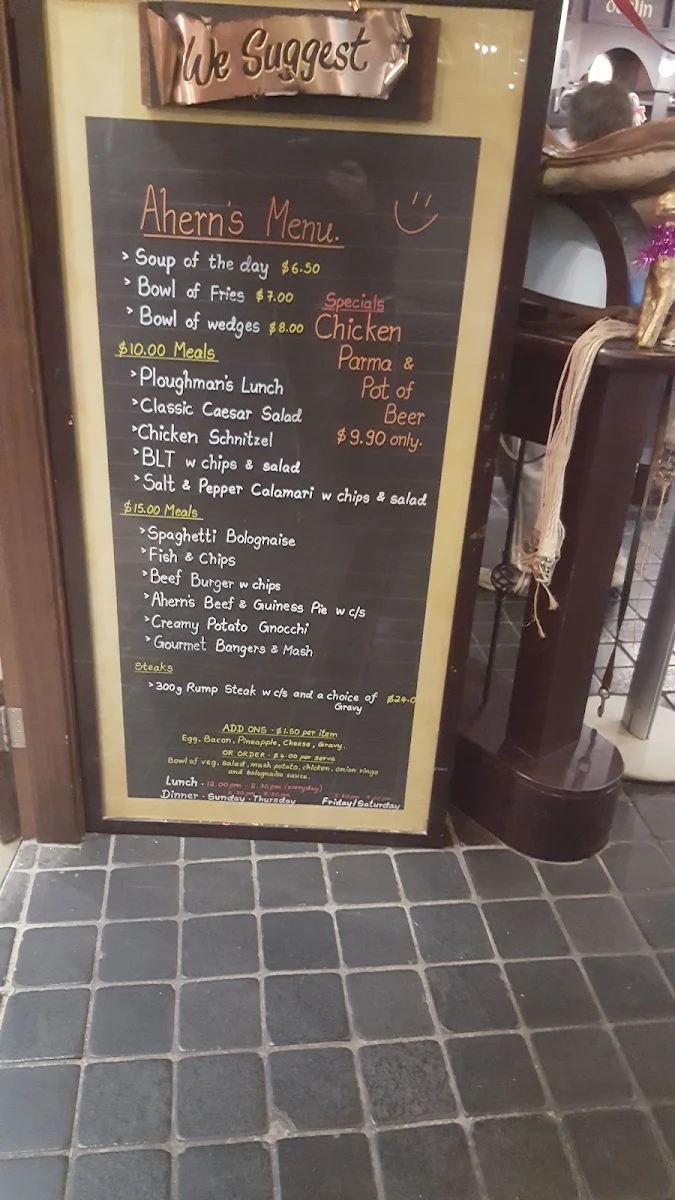 dublin
We Suggest
Ahern's Menu.
> Soup of the day $6.50
> Bowl of Fries $7.00
> Bowl of wedges $8.00
Specials
Chicken
Parma &
Pot of
Beer
$9.90 only.
$10.00 Meals
> Ploughman's Lunch
> Classic Caesar Salad
> Chicken Schnitzel
> BLT w chips & salad
> Salt & Pepper Calamari w chips & salad
$15.00 Meals
> Spaghetti Bolognaise
> Fish & Chips
> Beef Burger w chips
> Ahern's Beef & Guiness Pie w c/s
> Creamy Potato Gnocchi
> Gourmet Bangers & Mash
Steaks
> 300g Rump Steak w c/s and a choice of $24.0
Gravy
ADD ONS - $1.50 per item
Egg, Bacon, Pineapple, Cheese, Gravy.
OR ORDER - $4.00 per serve
Bowl of veg, salad, mash potato, chicken, onion rings
and bolognaise sauce.
Lunch - 12.00pm - 2.30pm (everyday)
Dinner - Sunday - Thursday Friday/Saturday